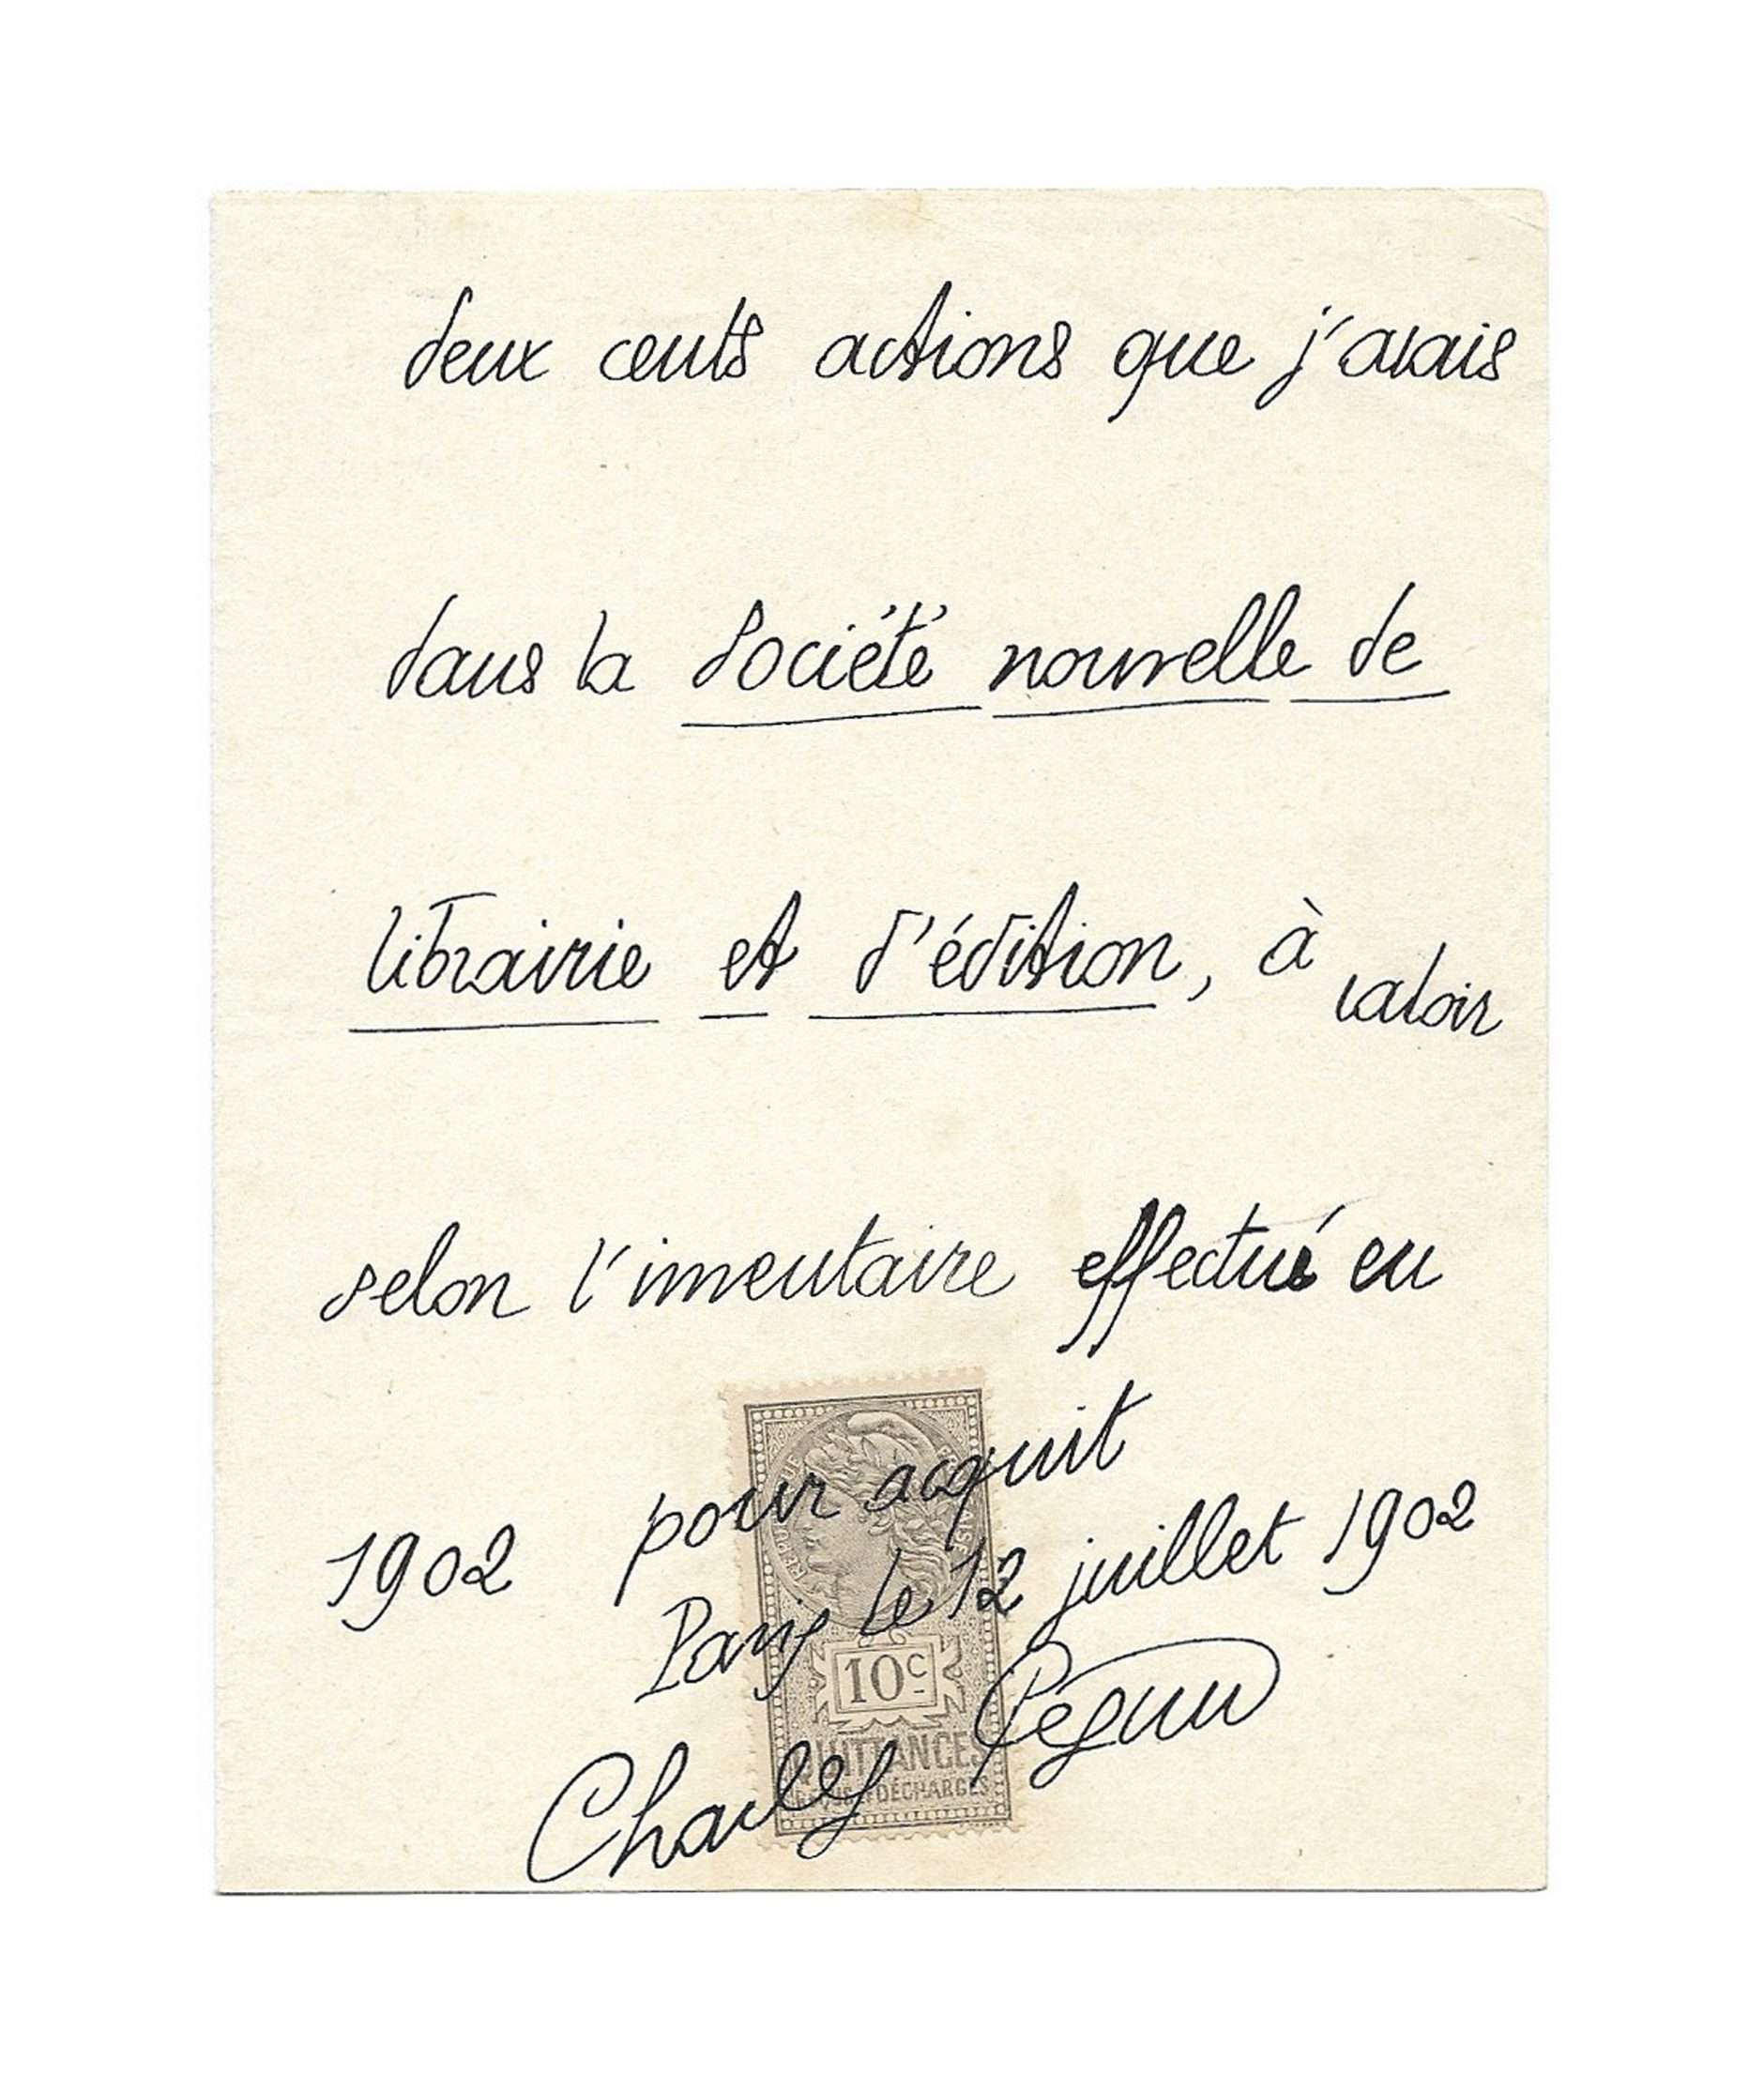 deux cents actions que j'avais
dans la Société nouvelle de
librairie et d'édition, à valoir
selon l'inventaire effectué en
1902 pour acquit
Paris le 12 juillet 1902
Charles Péguy
RÉPUBLIQUE FRANÇAISE
10c
QUITTANCES
REÇUS & DÉCHARGES